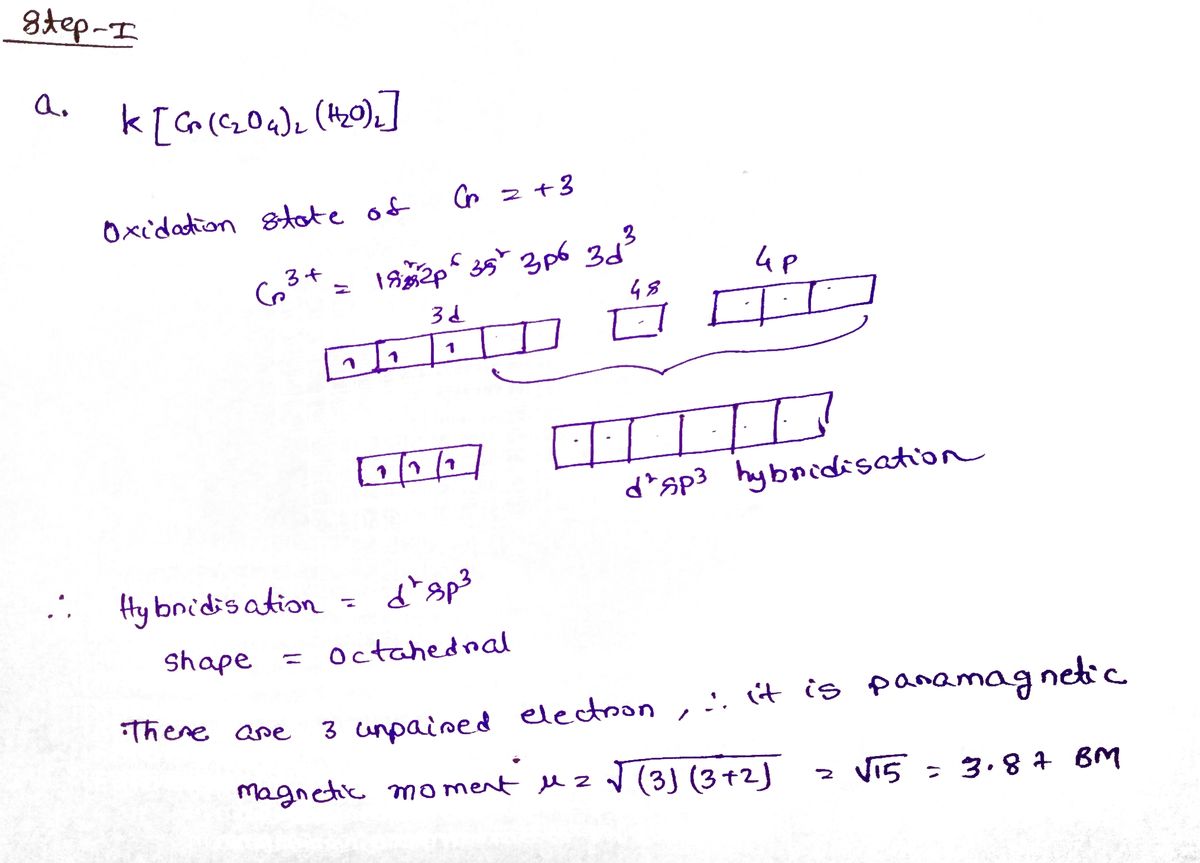 Step-I
a. K[Cr(C₂O₄)₂(H₂O)₂]
Oxidation state of Cr = +3
Cr³⁺ = 1s²2s²2p⁶ 3s² 3p⁶ 3d³
3d 4s 4p
1 1 1
1 1 1
d²sp³ hybridisation
∴ Hybridisation = d²sp³
shape = octahedral
There are 3 unpaired electron, ∴ it is paramagnetic
magnetic moment μ = √(3)(3+2) = √15 = 3.87 BM